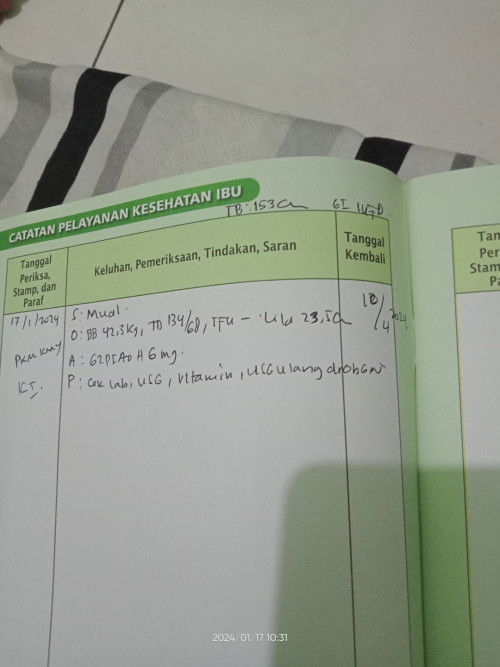 CATATAN PELAYANAN KESEHATAN IBU
TB : 153 Cm
Tanggal Periksa, Stamp, dan Paraf
Keluhan, Pemeriksaan, Tindakan, Saran
Tanggal Kembali
17/1/2024
S : Mual.
O : BB 42,3 Kg, TD 134/68, TFU - Lila 23,5 Cm
A : G2P1A0 H 6 mg.
P : Cek lab, USG, Vitamin, USG ulang
Tan
Per
Stam
Pa
2024/01/17 10:31